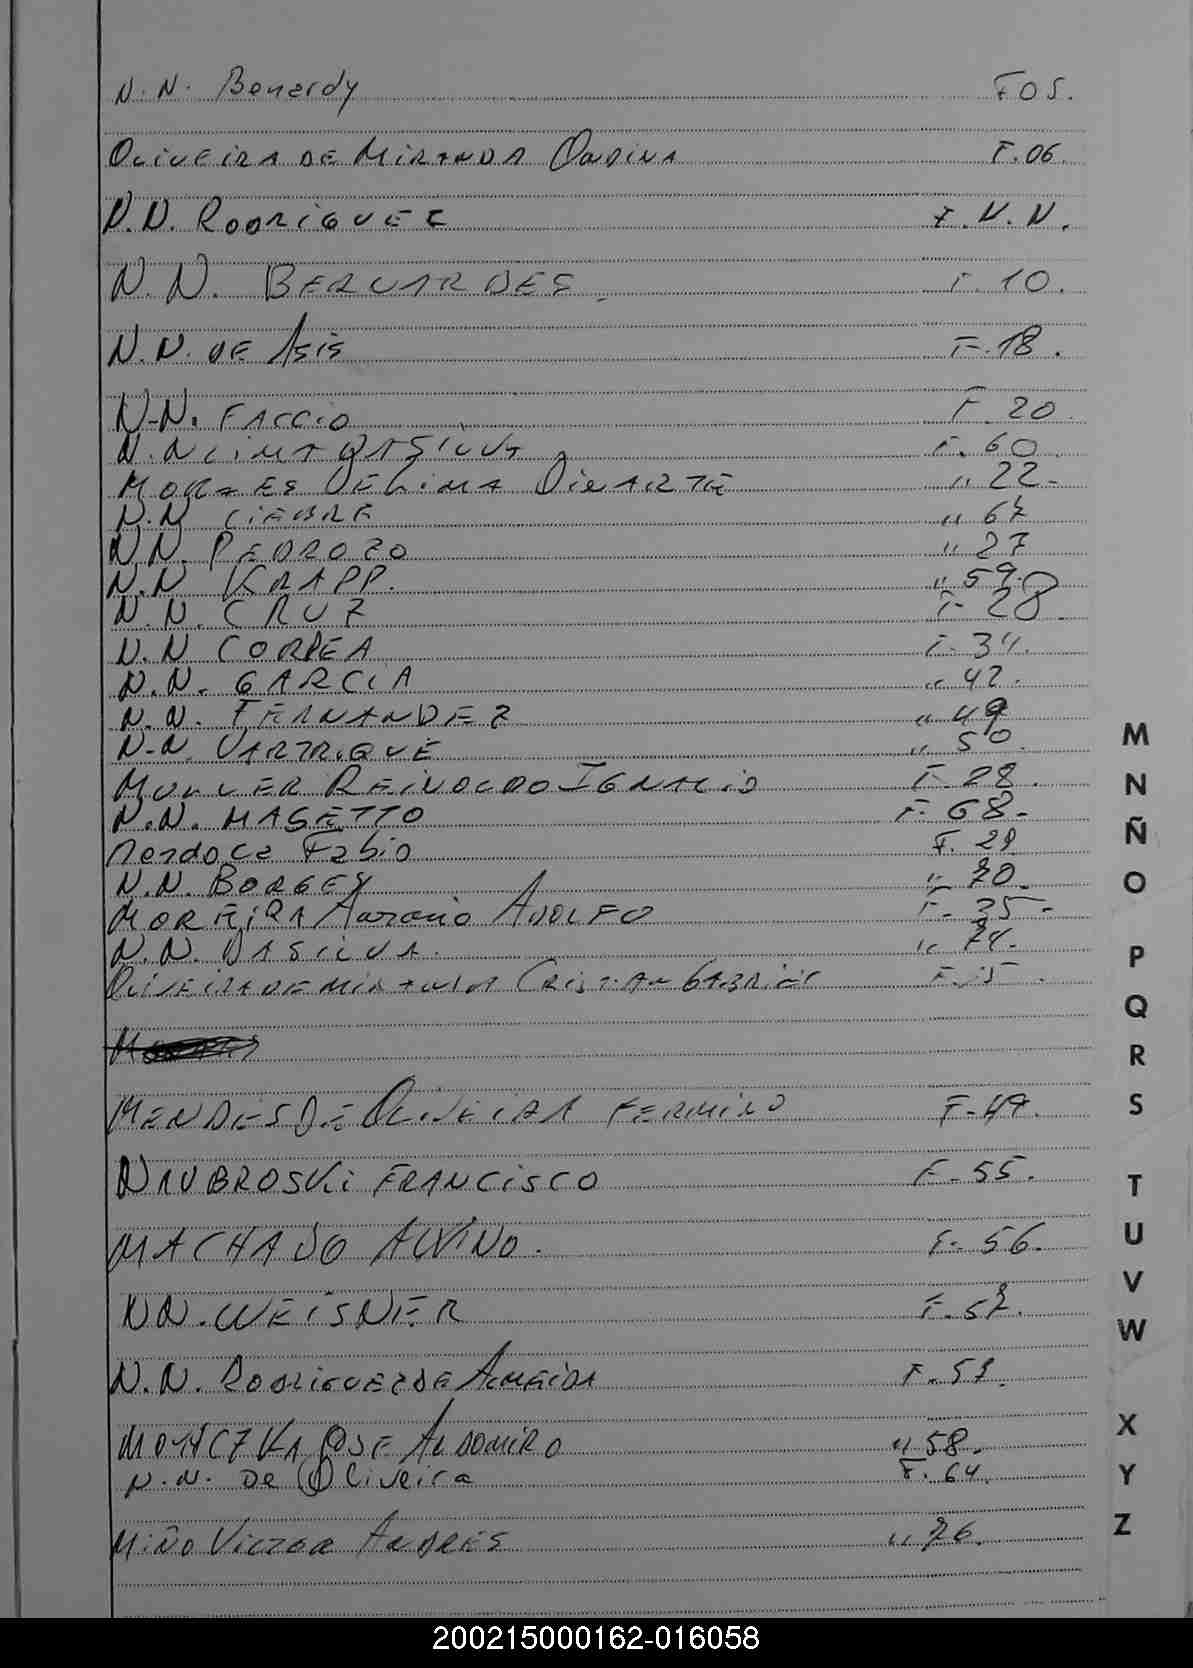 N.N. Benardy F05.
OLIVEIRA DE MIRANDA ONDINA F.06.
N.N. RODRIGUEZ F.N.N.
N.N. BERNARDES. F.10.
N.N. DE ASIS F.18.
N-N. FACCIO F 20.
N.N LIMA DA SILVA F.60
MORAES DE LIMA DUARTE " 22-
N.N " 67
N.N. PEDROZO " 27
N.N KRAPP. " 59.
N.N. CRUZ F-28.
N.N CORREA F.34.
N.N. GARCIA " 42.
N.N. FERNANDEZ " 49
N-N. " 50.
MULLER REINOLDO IGNACIO F.28.
N.N. MASETTO F.68-
Mendoça Fabio F.29
N.N. BORGES " 70.
MOREIRA Antonio ADOLFO F.35-
N.N. DA SILVA. " 74.
OLIVEIRA DE MIRANDA CRISTIAN GABRIEL F.15.
MENDES DE OLIVEIRA FERMINO F-49.
NAUBROSKI FRANCISCO F-55.
MACHADO ALVINO. F-56.
NN. WEISNER F-57.
N.N. RODRIGUEZ DE ALMEIDA F.57.
JOSE ALDOMIRO " 58.
N.N. De Oliveira F.64.
MIÑO VICTOR ANDRES " 76.
M
N
Ñ
O
P
Q
R
S
T
U
V
W
X
Y
Z
200215000162-016058